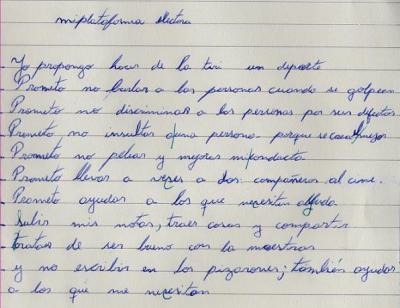 mi plataforma electora
Yo propongo hacer de la un deporte
- Prometo no burlar a las personas cuando se golpeen
Prometo no discriminar a las personas por sus difutos
Prometo no insultar a una persona porque se
Prometo no pelear y mejorar mi conducta
Prometo llevar a veces a dos compañeros al cine.
Prometo ayudar a los que necesitan ayuda
- Subir mis notas, traer cosas y compartir
- tratar de ser bueno con la maestras
- y no escribir en los pizarones; también ayudar
a los que me necesitan